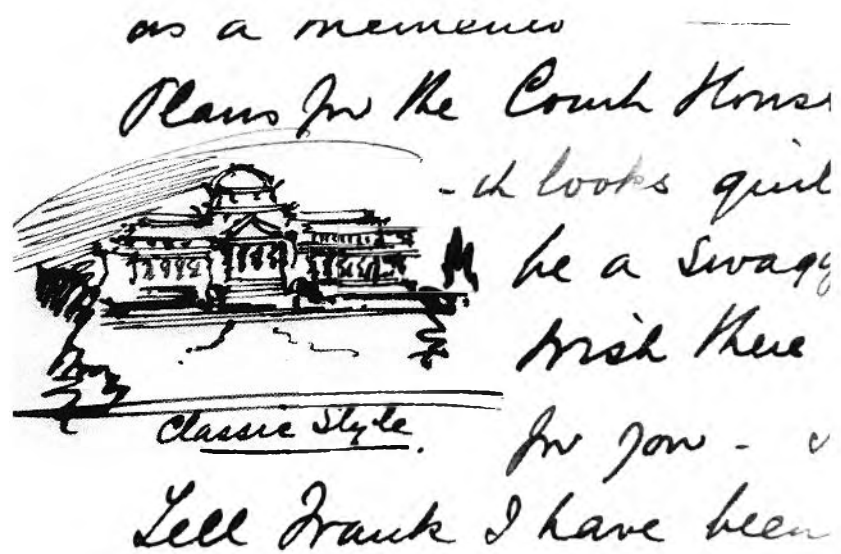 as a memento
Plans for the Court Hous
-ch looks quit
be a Swagg
wish there
for you - &
Classic Style.
Tell Frank I have been